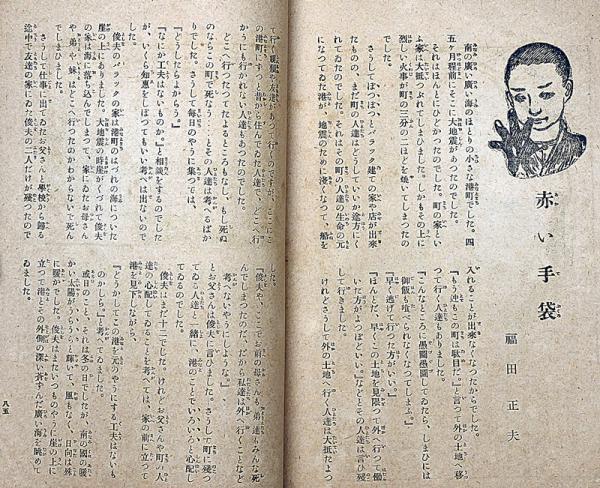 赤い手袋
福田正夫
南の廣い廣い海のほとりの小さな港町でした。四
五ヶ月程前、そこに大地震があつたのでした。
それはほんとにひどかつたのでした。町の家とい
ふ家は大抵つぶれてしまひました。しかもその上に
烈しい火事が町の三分の二ほど燒いてしまつたの
でした。
さうしてぼつぼつとバラック建ての家や店が出來
たものの、まだ町の人達はどうしていいか途方にく
れてゐたのでした。それはその町の人達の生命の元
になつてゐた港が、地震のために淺くなつて、船を
入れることが出來なくなつたからでした。
『もう迚もこの町は駄目だ。』と言つて外の土地へ移
つて行く人達もありました。
『こんなところに愚圖愚圖してゐたら、しまひには
御飯も喰べられなくなつてしまふ。』
『早く逃げて行つた方がいい。』
『ほんとだ、早くこの土地を見限つて外へ行つて働
いた方がよつぽどいい。』などとその人達は言ひ殘
して行きました。
けれどさうして外の土地へ行く人達は大抵たよつ
て行く親戚や友達があつて行くのですが、そこにこ
の港町にずつと昔から住んでゐた人達で、どこへ行
かうにも行かれない人達もあつたのでした。
どこへ行つたつてたよるところもなし、もし死ぬ
のならこの町で死なうとその人達は考へるばか
りでした。さうして毎日のやうに集つては、
『どうしたらよからう。』
『なにか工夫はないものか。』と相談をするのでした
が、いくら知惠をしぼつてもいい考へは出ないので
した。
俊夫のバラックの家は港町のはづれの海についた
崖の上にありました。大地震の時崖がくづれて俊夫
の家は海に落ち込んでしまつて、家にゐたお母さん
や、弟や、妹はどこへ行つたのかわからないで死ん
でしまひました。
さうして仕事に出てゐたお父さんと學校から歸る
途中で友達の家にゐた俊夫の二人だけが殘つたので
した。
『俊夫や、ここでお前の母さんも、弟達もみんな死
んでしまつたのだ、だからお前達は外へ行くことなど
考へないやうにしようなあ。』
とお父さんは俊夫に言ひました。さうして町に殘つ
てゐる人達と一緒に、港のことでいろいろと心配し
てゐるのでした。
俊夫はまだ十二でした。けれどお父さんや町の人
達の心配してゐることを考へては、家の前に立つて
港を見下しながら、
『どうかしてこの港を元のやうにする工夫はないも
のかしら。』と考へてゐました。
或日のこと、それは冬の日でしたが、南の國の暖
かい太陽がうらうらと輝いて、風もなく、日向は殊
に暖かでした。俊夫はまたいつものやうに崖の上に
立つて港とその外側の深い蒼ずんだ廣い海を眺めて
ゐました。
八五